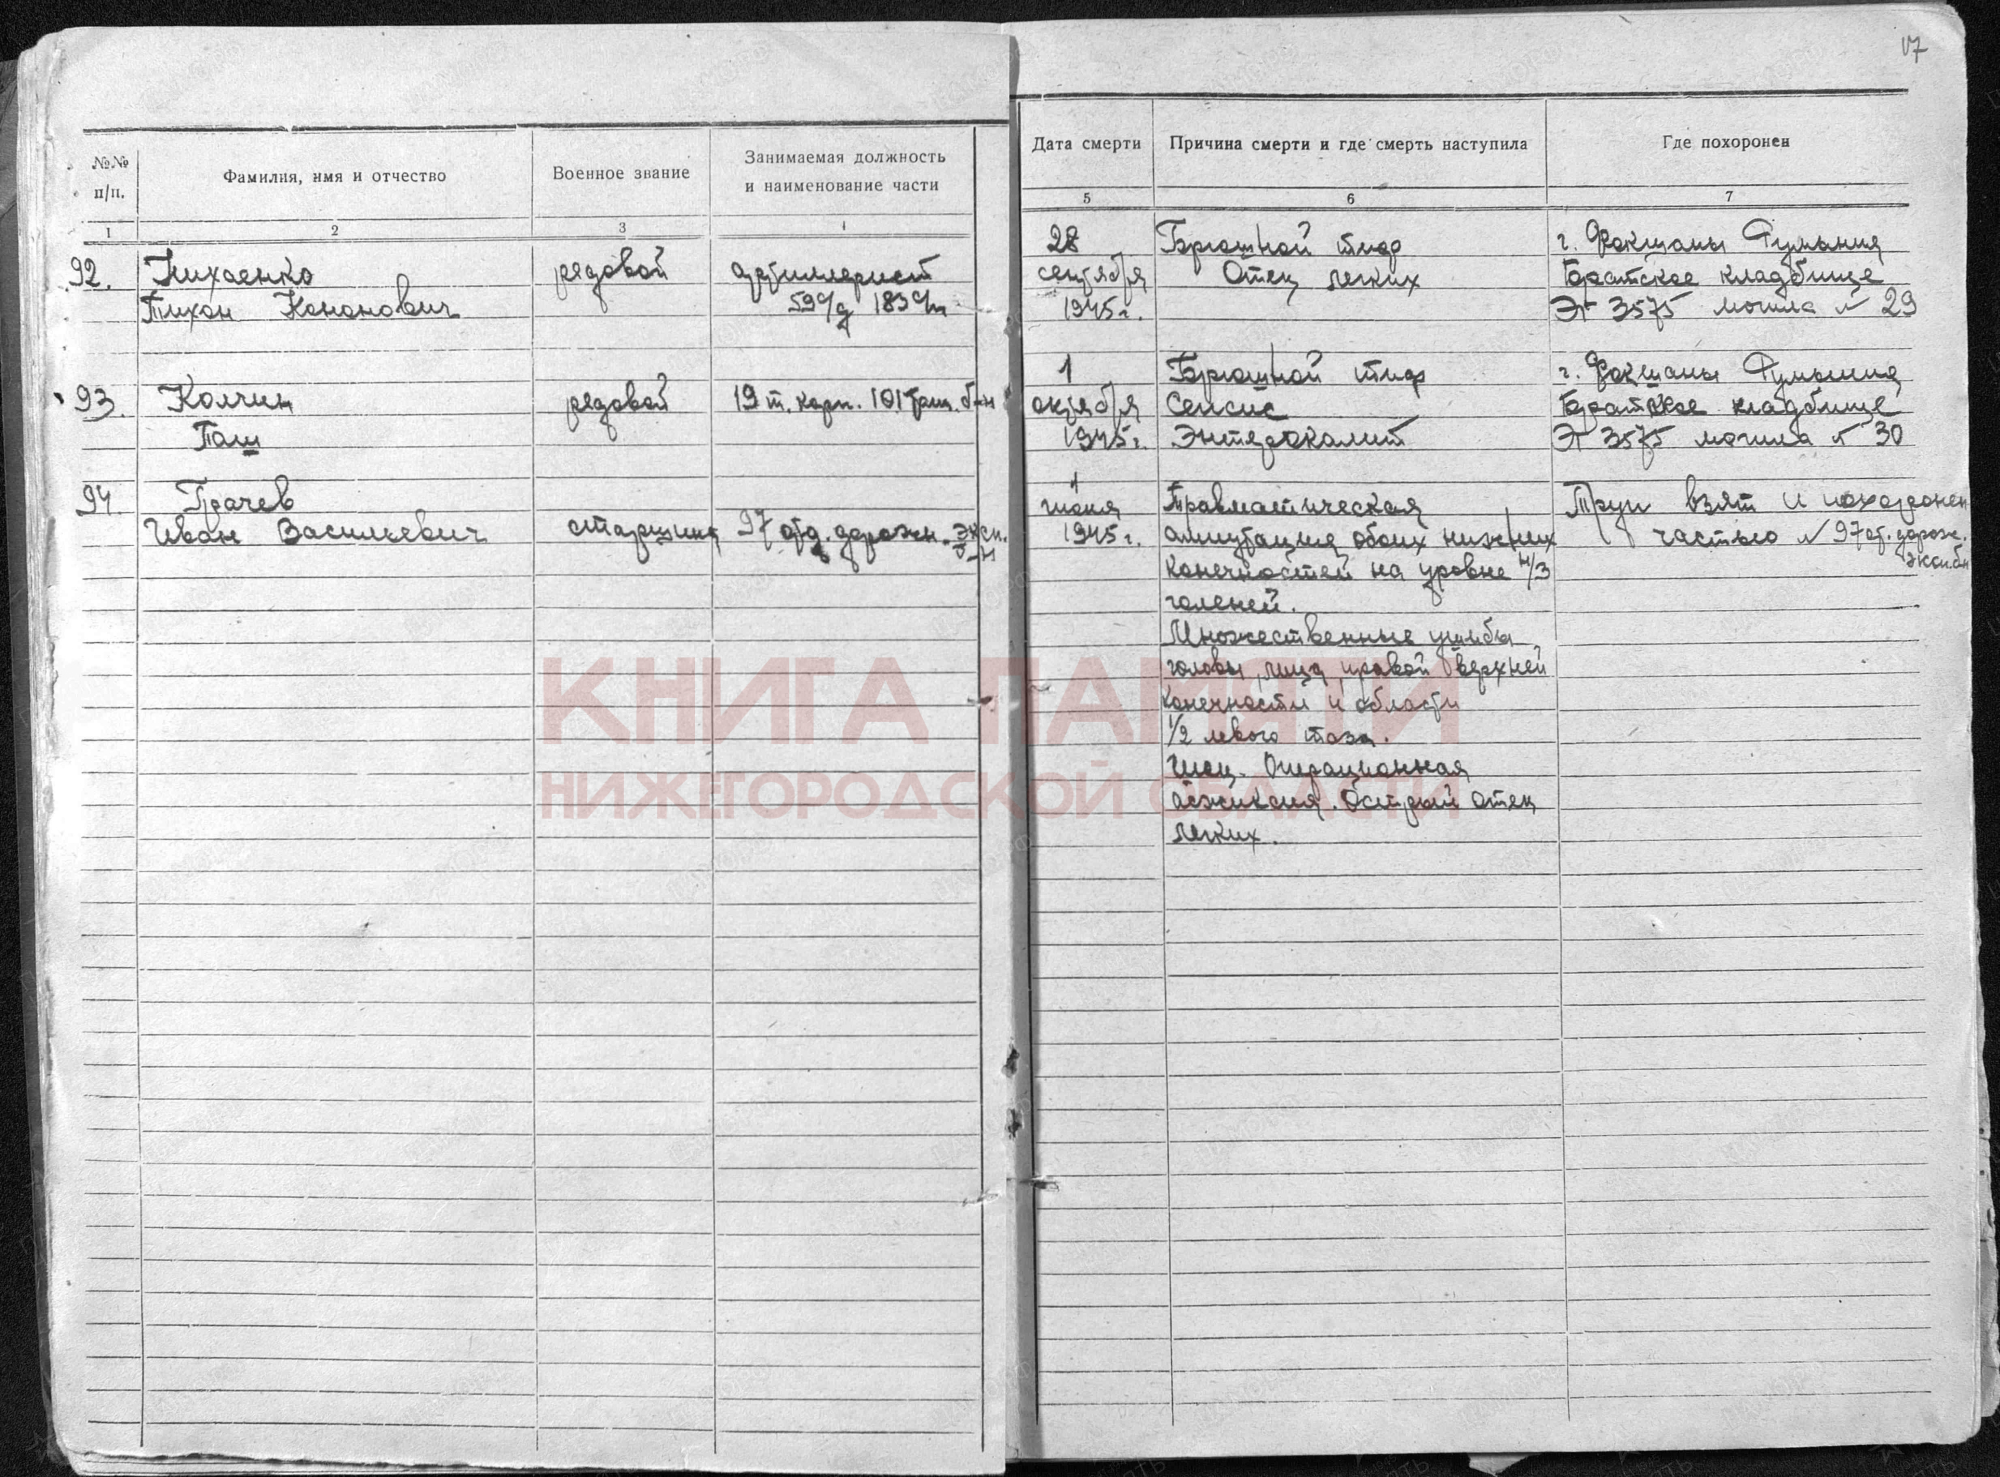 17
№№
п/п.
Фамилия, имя и отчество
Военное звание
Занимаемая должность
и наименование части
Дата смерти
Причина смерти и где смерть наступила
Где похоронен
1
2
3
4
5
6
7
92.
Тихон Кононович
рядовой
артиллерист
59 с/д 183 с/п
28
сентября
1945 г.
Брюшной тиф
Отек легких
г. Фокшаны Румыния
Братское кладбище
Эг 3575 могила № 29
93.
Колчин
Паш
рядовой
19 т. корп. 101 Тран. б-н
1
октября
1945 г.
Брюшной тиф
Сепсис
Энтероколит
г. Фокшаны Румыния
Братское кладбище
Эг 3575 могила № 30
94.
Грачев
Иван Васильевич
старшина
97 отд. дорожн. эксп.
б-н
1
июня
1945 г.
Травматическая
ампутация обоих нижних
конечностей на уровне н/3
голеней.
Множественные ушибы
головы, лица, правой верхней
конечности и области
1/2 левого таза.
Шок. Операционная
асфиксия. Острый отек
легких.
Труп взят и похоронен
частью № 97 от. дорож.
экс. бн
КНИГА ПАМЯТИ
НИЖЕГОРОДСКОЙ ОБЛАСТИ